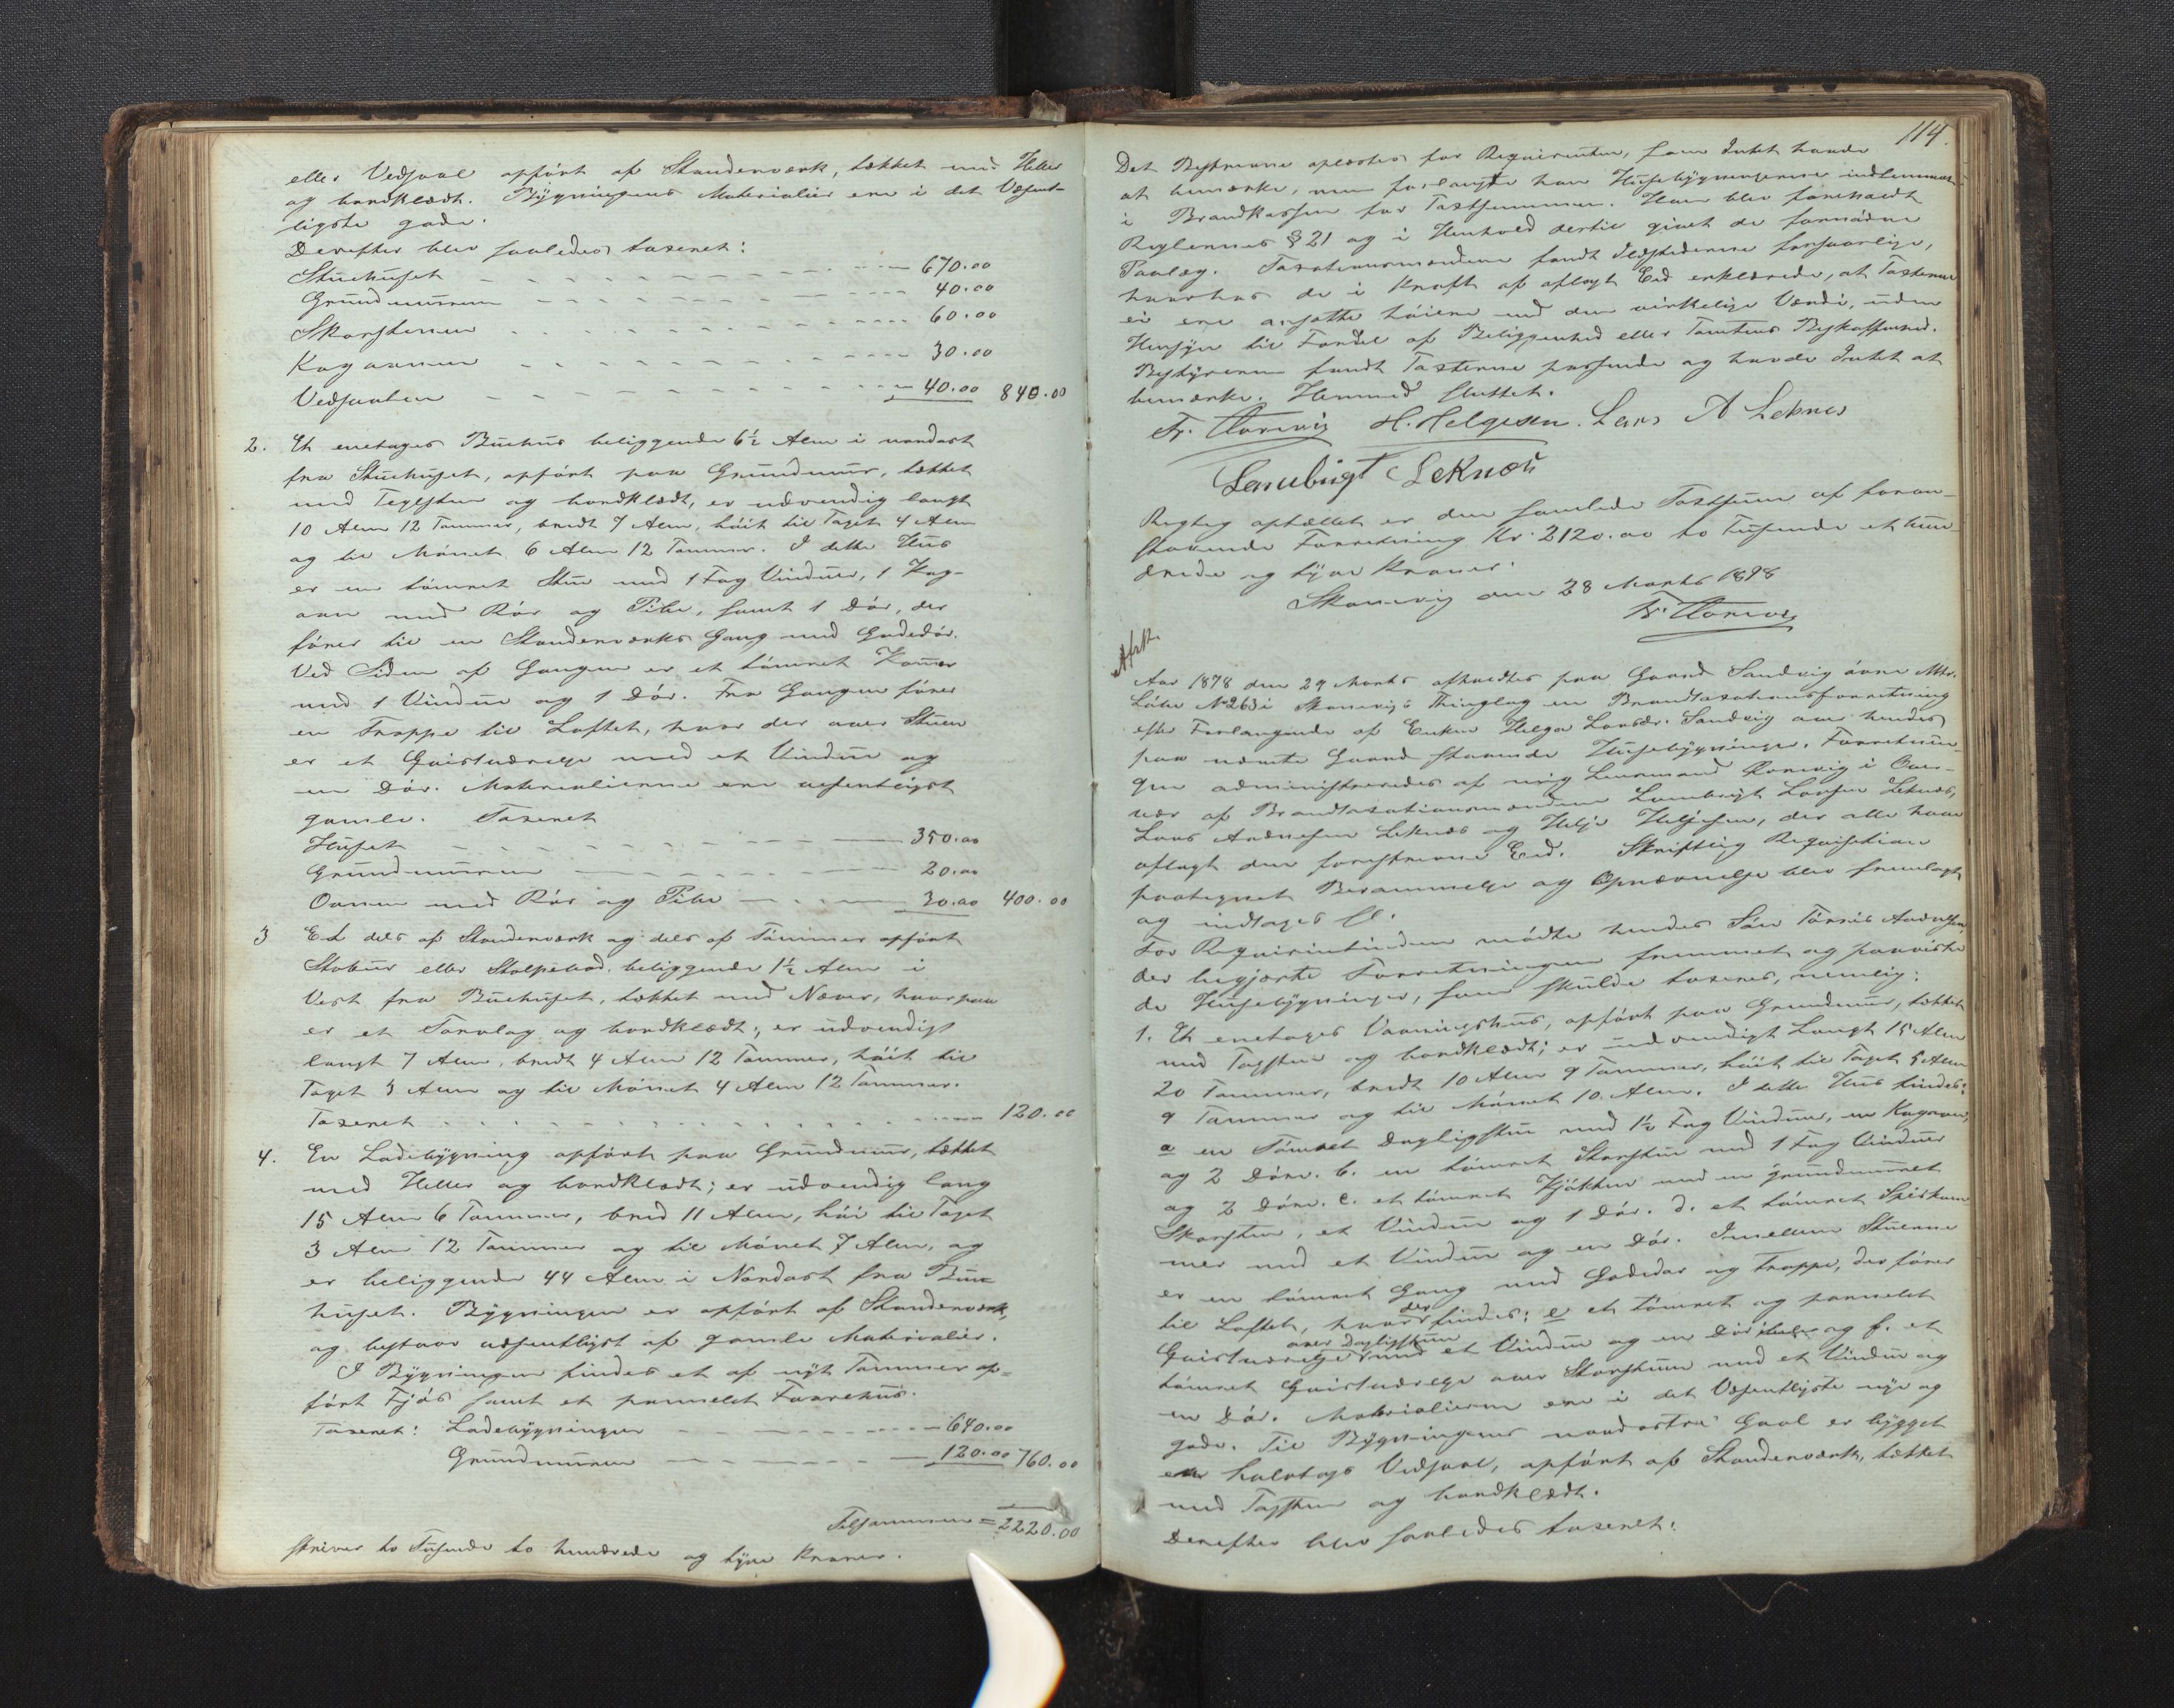 eller Vedskaal opført af Standerværk, tækket med Heller
og bordklædt. Bygningens Materialier ere i det Væsent-
ligste gode.
Derefter blev saaledes taxeret:
Stuehuset 670.00
Grundmuren 40.00
Skorstenen 60.00
Kogovnen 30.00
Vedskaalen 40.00 840.00
2. Et enetages Buehus beliggende 6½ Alen i nordost
fra Stuehuset, opført paa Grundmuur, tækket
med Teglsten og bordklædt, er udvendig langt
10 Alen 12 Tommer, bredt 7 Alen, høit til Taget 4 Alen
og til Mønet 6 Alen 12 Tommer. I dette Huus
er en tømret Stue med 1 Fag Vinduer, 1 Kog-
ovn med Rør og Pibe, samt 1 Dør, der
fører til en Standerværks Gang med Gadedør.
Ved Siden af Gangen er et tømret Kammer
med 1 Vindue og 1 Dør. Fra Gangen fører
en Trappe til Loftet, hvor der over Stuen
er et Qvistværelse med et Vindue og
en Dør. Materialierne ere vesentligst
gamle. Taxeret
Huset 350.00
Grundmuren 20.00
Ovnen med Rør og Pibe 30.00 400.00
3 Et dels af Standerværk og dels af Tømmer opført
Stabuur eller Stolpebod, beliggende 1½ Alen i
Vest fra Buehuset, tækket med Næver, hvorpaa
er et Torvlag og bordklædt; er udvendigt
langt 7 Alen, bredt 4 Alen 12 Tommer, høit til
Taget 3 Alen og til Mønet 4 Alen 12 Tommer.
Taxeret 120.00
4. En Ladebygning opført paa Grundmuur, tækket
med Heller og bordklædt; er udvendig lang
15 Alen 6 Tommer, bred 11 Alen, høi til Taget
3 Alen 12 Tommer og til Mønet 7 Alen, og
er beliggende 44 Alen i Nordost fra Bue-
huset. Bygningen er opført af Standerværk,
og bestaar væsentligst af gamle Materialier.
I Bygningen findes et af nyt Tømmer op-
ført Fjøs samt et pannelet Faarehus.
Taxeret: Ladebygningen 640.00
Grundmuren 120.00 760.00
Tilsammen = 2220.00
skriver to Tusinde to hundrede og tyve Kroner.
114.
Det Beskrevne oplæstes for Reqvirenten, som Intet havde
at bemærke, men forlangte han Husebygningerne indlemmet
i Brandkassen for Taxtsummen. Han blev foreholdt
Reglernes § 21 og i Henhold dertil givet de fornødne
Paalæg. Taxationsmændene fandt Ildstederne forsvarlige,
hvorhos de i Kraft af aflagt Eed erklærede, at Taxterne
ei ere ansatte høiere end den virkelige Værdi, uden
Hensyn til Fordel af Beliggenhed eller Tomtens Beskaffenhed.
Bestyreren fandt Taxterne passende og havde Intet at
bemærke. Hermed sluttet.
H. Helgesen. Lars A Leknes
Lambrigt Leknæs
Rigtig optællet er den samlede Taxtsum af foran-
staaende Forretning Kr. 2120.00 to Tusinde et hun-
drede og tyve Kroner.
Skonevig den 28 Marts 1878
Afsk.
Aar 1878 den 29 Marts afholdtes paa Gaard Sandvig øvre Mtr.
Løbe No 263 i Skonevigs Thinglag en Brandtaxationsforretning
efter Forlangende af Enken Helga Larsdr. Sandvig over hendes
paa nævnte Gaard staaende Husebygninger. Forretnin-
gen administreredes af mig Lensmand i Over-
vær af Brandtaxationsmændene Lambrigt Larsen Leknæs,
Lars Andersen Leknæs og Helje Heljesen, der alle have
aflagt den foreskrevne Eed. Skriftlig Reqvisition
paategnet Berammelse og Opnævnelse blev fremlagt
og indtages
For Reqvirentinden mødte hendes Søn Tørris
der begjærte Forretningen fremmet og paaviste
de Husebygninger, som skulde taxeres, nemlig:
1. Et enetages Vaaningshus, opført paa Grundmuur, tækket
med Tagsten og bordklædt; er udvendigt Langt 15 Alen
20 Tommer, bredt 10 Alen 9 Tommer, høit til Taget 5 Alen
9 Tommer og til Mønet 10 Alen. I dette Hus findes:
a en Tømret Dagligstue med 1½ Fag Vinduer, en Kogovn,
og 2 Døre. b. en tømret Storstue med 1 Fag Vinduer
og 2 Døre. c. et tømret Kjøkken med en grundmuret
Skorsten, et Vindue og 1 Dør. d. et tømret Spiskam-
mer med et Vindue og en Dør. Imellem Stuerne
er en tømret Gang med Gadedør og Trappe, der fører
til Loftet, hvor der findes: e et tømret og pannelet
Qvistværelse over Dagligstuen med et Vindue og en Dør og f. et
tømret Qvistværelse over Storstuen med et Vindue og
en Dør. Materialierne ere i det Væsentligste nye og
gode. Til Bygningens nordøstre Gavl er bygget
en halvtags Vedskaal, opført af Standerværk, tækket
med Tagsten og bordklædt.
Derefter blev saaledes taxeret: